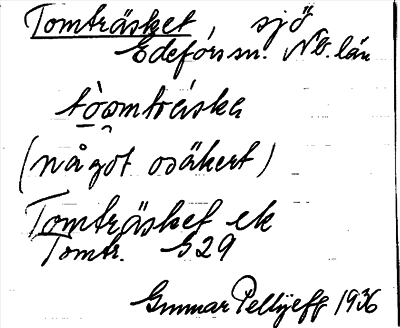 Tomträsket, sjö
Edefors sn. Nb. län
tòomtráska
(något osäkert)
Tomträsket ek
Tomtr. S29
Gunnar Pellijeff 1936